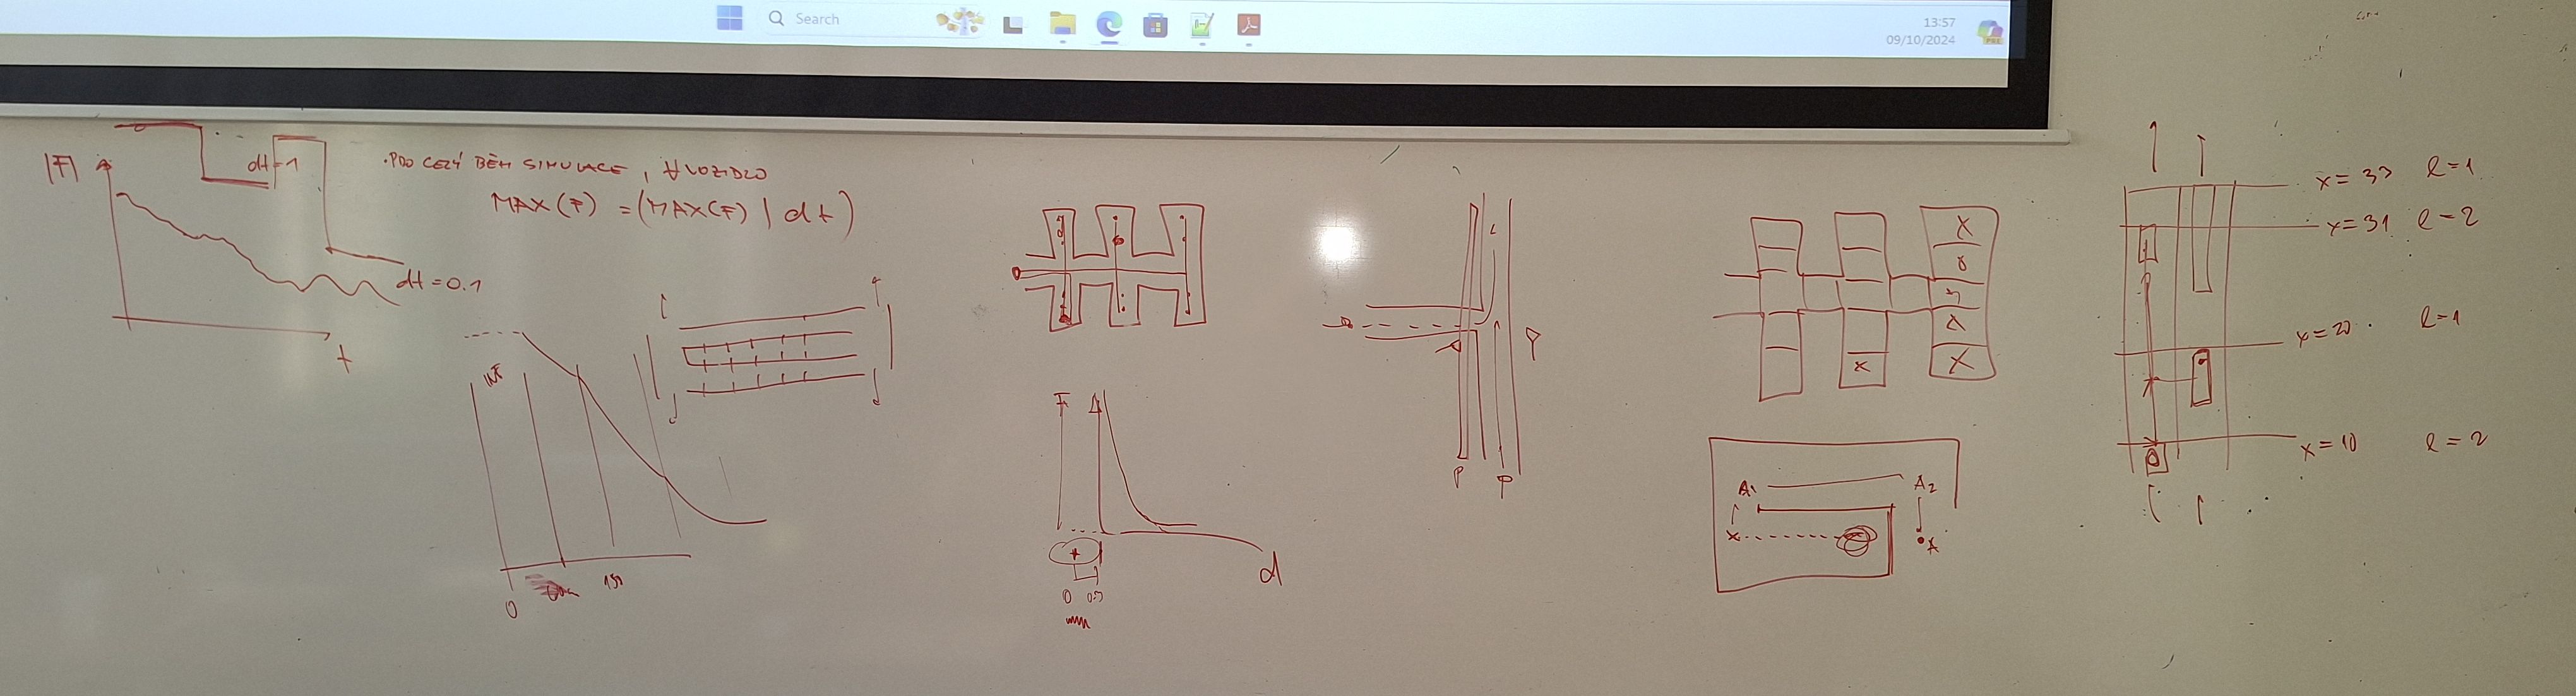 Search
13:57
09/10/2024
PRE
|F|
dt=1
dt=0.1
t
PRO CELÝ BĚH SIMULACE, ∀ VOZIDLO
MAX(F) = (MAX(F) | dt)
INF
0
150
F
d
0 0.5
P
X
8
X
X
X
A1
A2
x
A
x=33 l=1
x=31 l=2
x=20 l=1
x=10 l=2